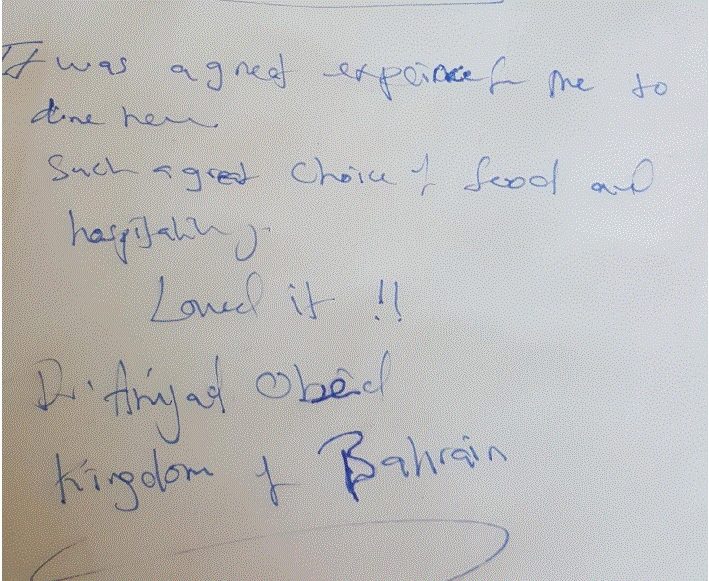 It was a great experience for me to
dine here.
Such a great choice of food and
hospitality.
Loved it !!
Dr. Amjad Obeid
Kingdom of Bahrain